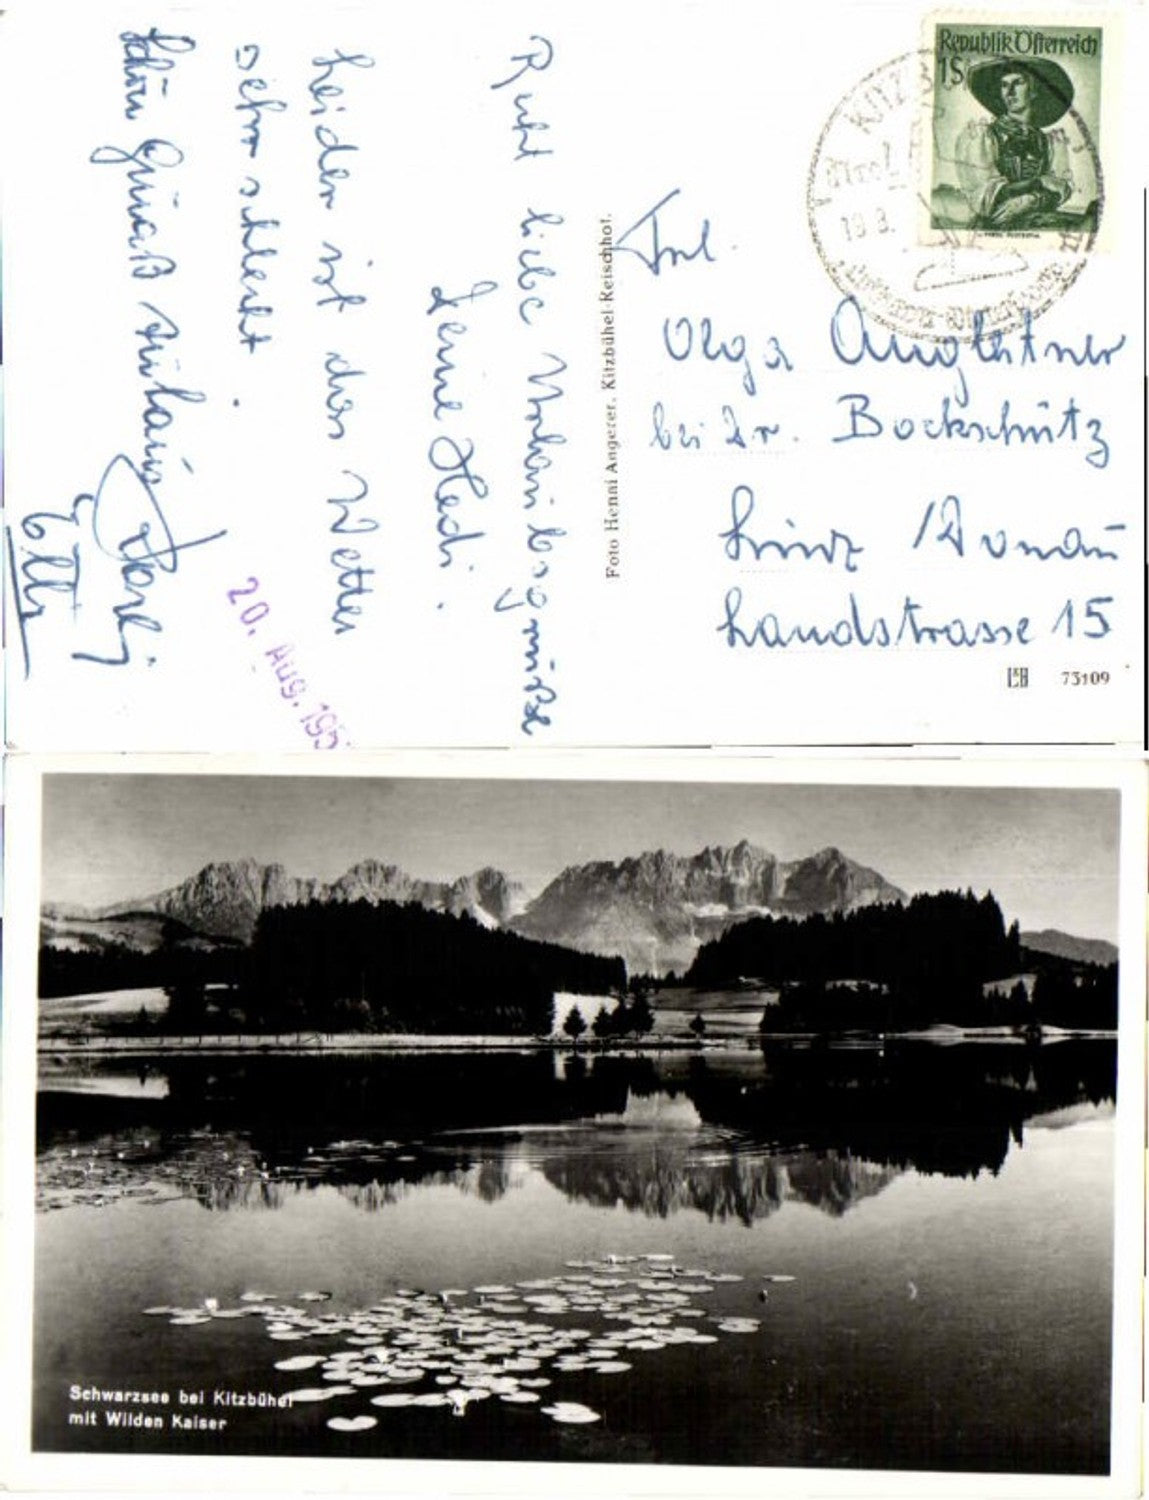 Republik Österreich
1S
KITZ
Tirol
19.8.
Recht liebe Urlaubsgrüße
Deine Hedi.
Leider ist das Wetter
sehr schlecht.
20. AUG. 195
Foto Henni Angerer, Kitzbühel-Reischhof.
Frl.
Olga
bei Dr. Bockschütz
Linz / Donau
Landstrasse 15
73109
Schwarzsee bei Kitzbühel
mit Wilden Kaiser